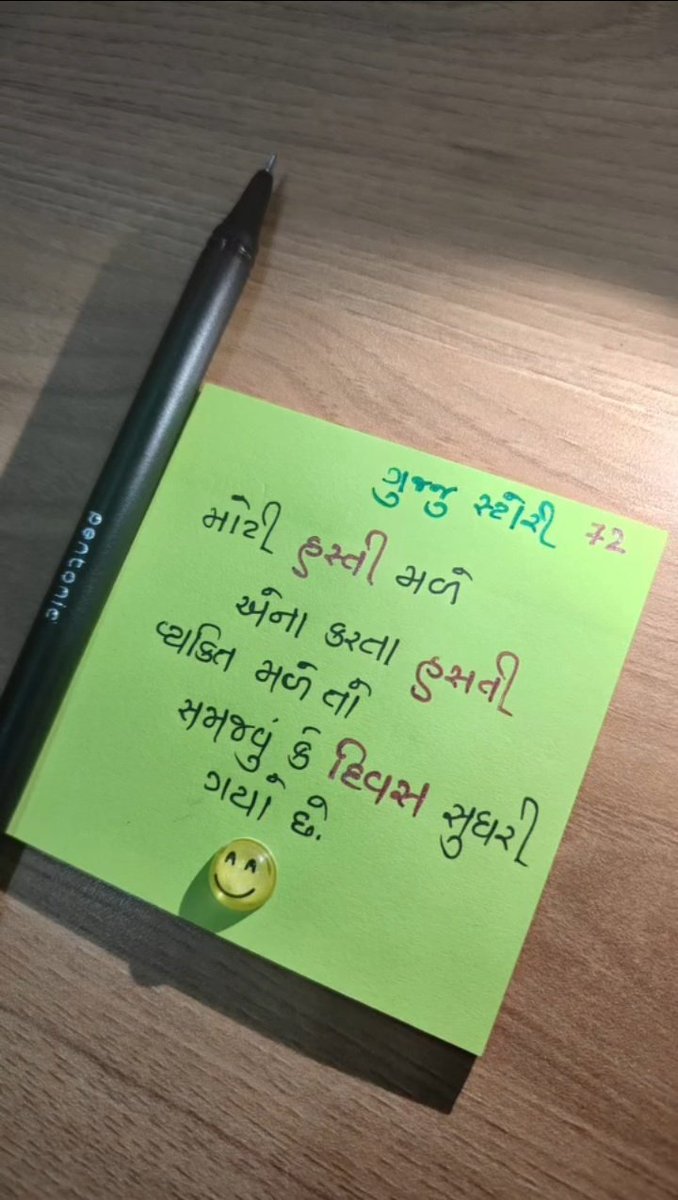 ગુજ્જુ સ્ટોરી 72
મોટી હસ્તી મળે
એના કરતા હસતી
વ્યકિત મળે તો
સમજવું કે દિવસ સુધરી
ગયો છે.
pentonic